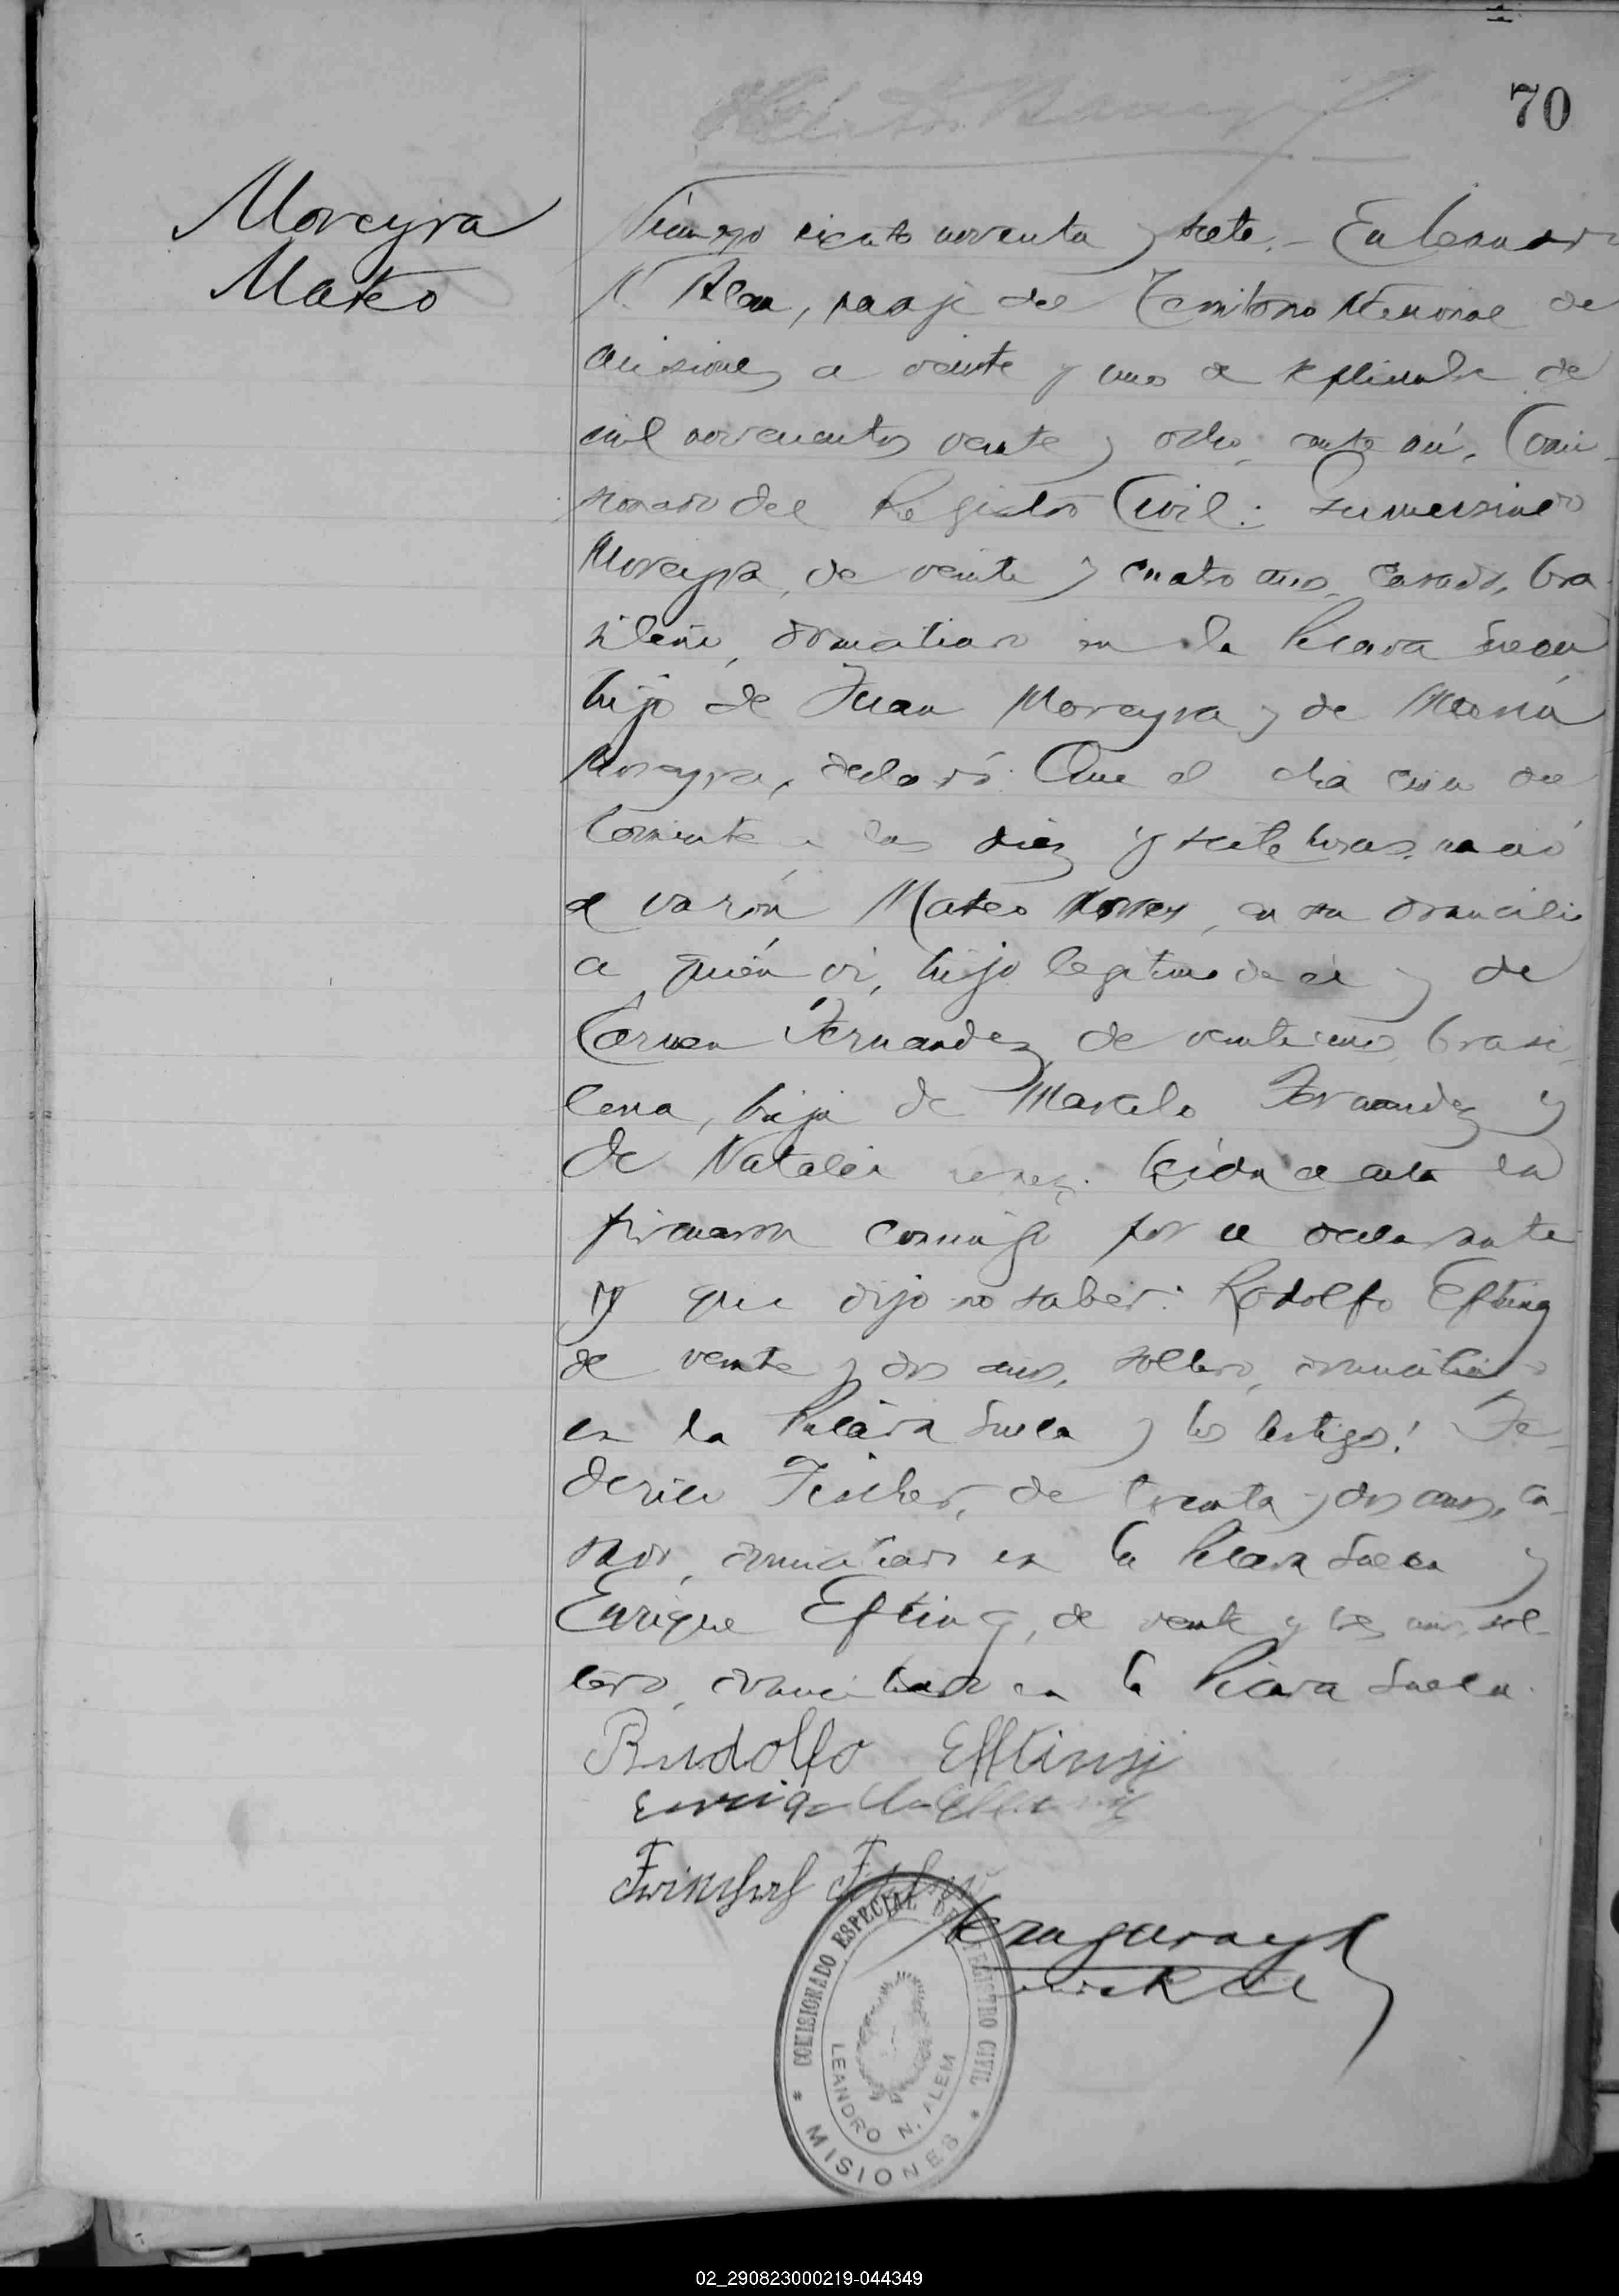 70
Moreyra
Mateo
Número ciento noventa y siete.- En Leandro
N. Alem, paraje del Territorio Nacional de
Misiones a veinte y uno de septiembre de
mil novecientos veinte y ocho, ante mí, Comi-
sionado del Registro Civil: Gumersindo
Moreyra, de veinte y cuatro años, casado, bra
sileño, domiciliado en la Picada Sueca
hijo de Juan Moreyra y de María
Moreyra, declaró: Que el día del
corriente a las diez y siete horas nació
el varón Mateo, en su domicilio
a quién vi, hijo legítimo de él y de
Carmen Fernandez, de brasi
lena, hija de Marcelo Fernandez y
de Natalia Leída el acta la
firmaron conmigo por el declarante
y que dijo no saber: Rodolfo Efting
de veinte y dos años, soltero, domiciliado
en la Picada Sueca y los testigos: Fe-
derico Fischer, de treinta y dos años, ca-
sado, domiciliado en la Picada Sueca y
Enrique Efting, de veinte y tres años, sol-
tero, domiciliado en la Picada Sueca.
Rudolfo Effting
COMISIONADO ESPECIAL DEL REGISTRO CIVIL
LEANDRO N. ALEM
* MISIONES *
02_290823000219-044349